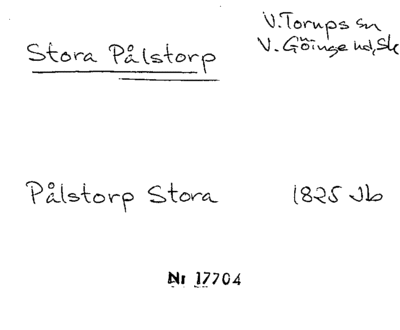 V. Torups sn
Stora Pålstorp
V. Göinge hd, Sk
Pålstorp Stora 1825 Jb
Nr 17704